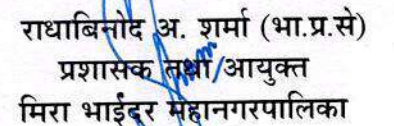 राधाबिनोद अ. शर्मा (भा.प्र.से)
प्रशासक तथा/आयुक्त
मिरा भाईंदर महानगरपालिका